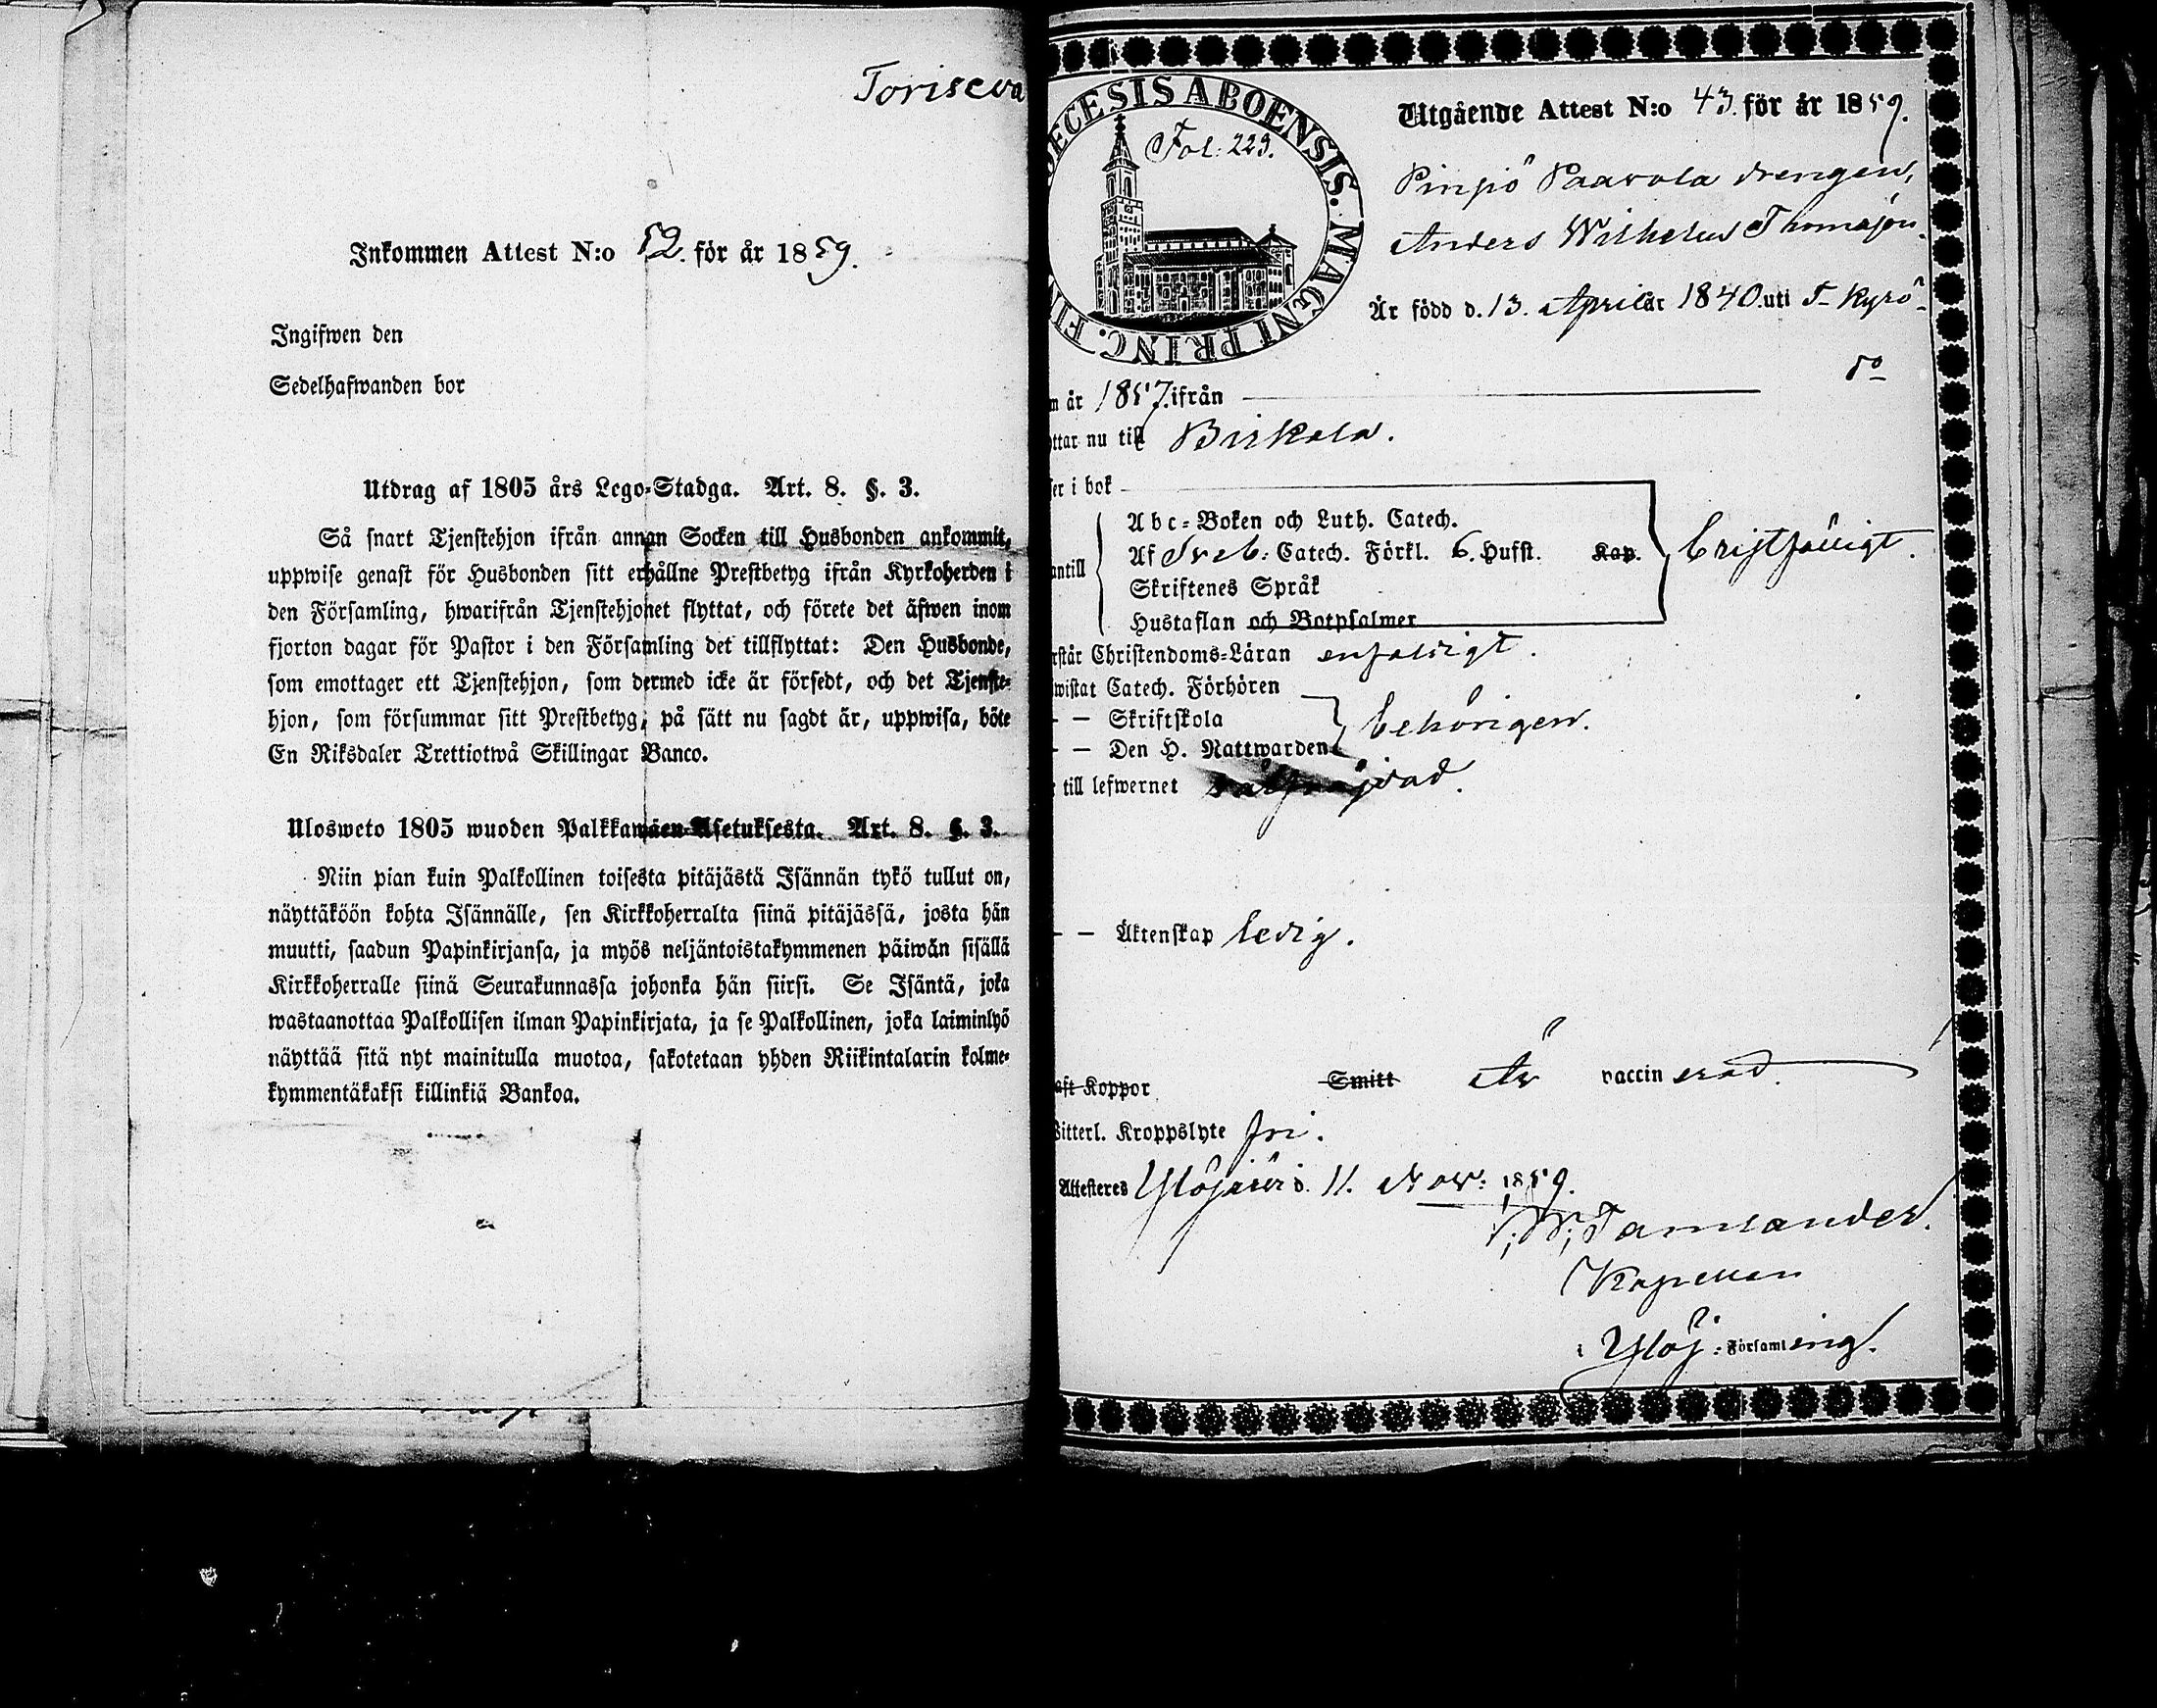 Toriseva
Inkommen Attest N:o 52. för år 1859.
Ingifwen den
Sedelhafwanden bor
Utdrag af 1805 års Lego-Stadga. Art. 8. §. 3.
Så snart Tjenstehjon ifrån annan Socken till Husbonden ankommit,
uppwise genast för Husbonden sitt erhållne Prestbetyg ifrån Kyrkoherden i
den Församling, hwarifrån Tjenstehjonet flyttat, och förete det äfwen inom
fjorton dagar för Pastor i den Församling det tillflyttat: Den Husbonde,
som emottager ett Tjenstehjon, som dermed icke är försedt, och det Tjenste-
hjon, som försummar sitt Prestbetyg, på sätt nu sagdt är, uppwisa, böte
En Riksdaler Trettiotwå Skillingar Banco.
Ulosweto 1805 wuoden Palkkawäen-Asetuksesta. Art. 8. §. 3.
Niin pian kuin Palkollinen toisesta pitäjästä Isännän tykö tullut on,
näyttäköön kohta Isännälle, sen Kirkkoherralta siinä pitäjässä, josta hän
muutti, saadun Papinkirjansa, ja myös neljäntoistakymmenen päiwän sisällä
Kirkkoherralle siinä Seurakunnassa johonka hän siirsi. Se Isäntä, joka
wastaanottaa Palkollisen ilman Papinkirjata, ja se Palkollinen, joka laiminlyö
näyttää sitä nyt mainitulla muotoa, sakotetaan yhden Riikintalarin kolme-
kymmentäkaksi killinkiä Bankoa.
ECESIS ABOENSIS. MAGNI PRINC. FI
Fol: 223.
Utgående Attest N:o 43. för år 1859.
Pinsiö Paavola drengen,
Anders Wilhelm Thomasson.
Är född d. 13. April år 1840. uti T-Kyrö
n år 1857. ifrån do
ttar nu till Birkala.
ser i bok
Abc-Boken och Luth. Catech.
antill Af Sveb: Catech. Förkl. 6. Hufst. Kap. bristfälligt.
Skriftenes Språk
Hustaflan och Botpsalmer
rstår Christendoms-Läran enfaldigt.
wistat Catech. Förhören
- - Skriftskola behörigen.
- - Den H. Nattwarden
till lefwernet
- - Äktenskap ledig.
aft Koppor Smitt Är vaccinerad.
Witterl. Kroppslyte fri.
Attesteres Ylöjärvi d. 11. Nov: 1859.
Tamlander.
Kapellan
i Ylöj: Församling.